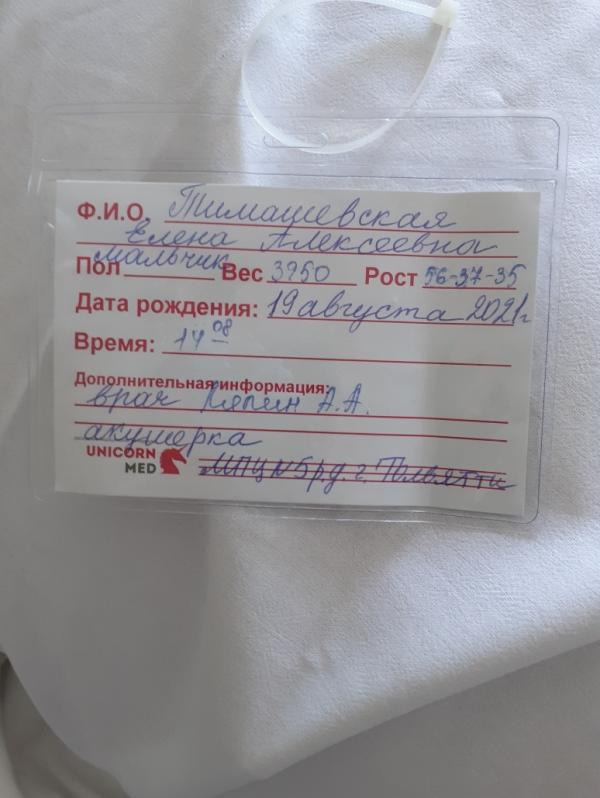 Ф.И.О. Тимашевская
Елена Алексеевна
Пол мальчик Вес 3950 Рост 56-37-35
Дата рождения: 19 августа 2021г
Время: 14 08
Дополнительная информация:
врач А.А.
акушерка
UNICORN
MED
г. Тольятти